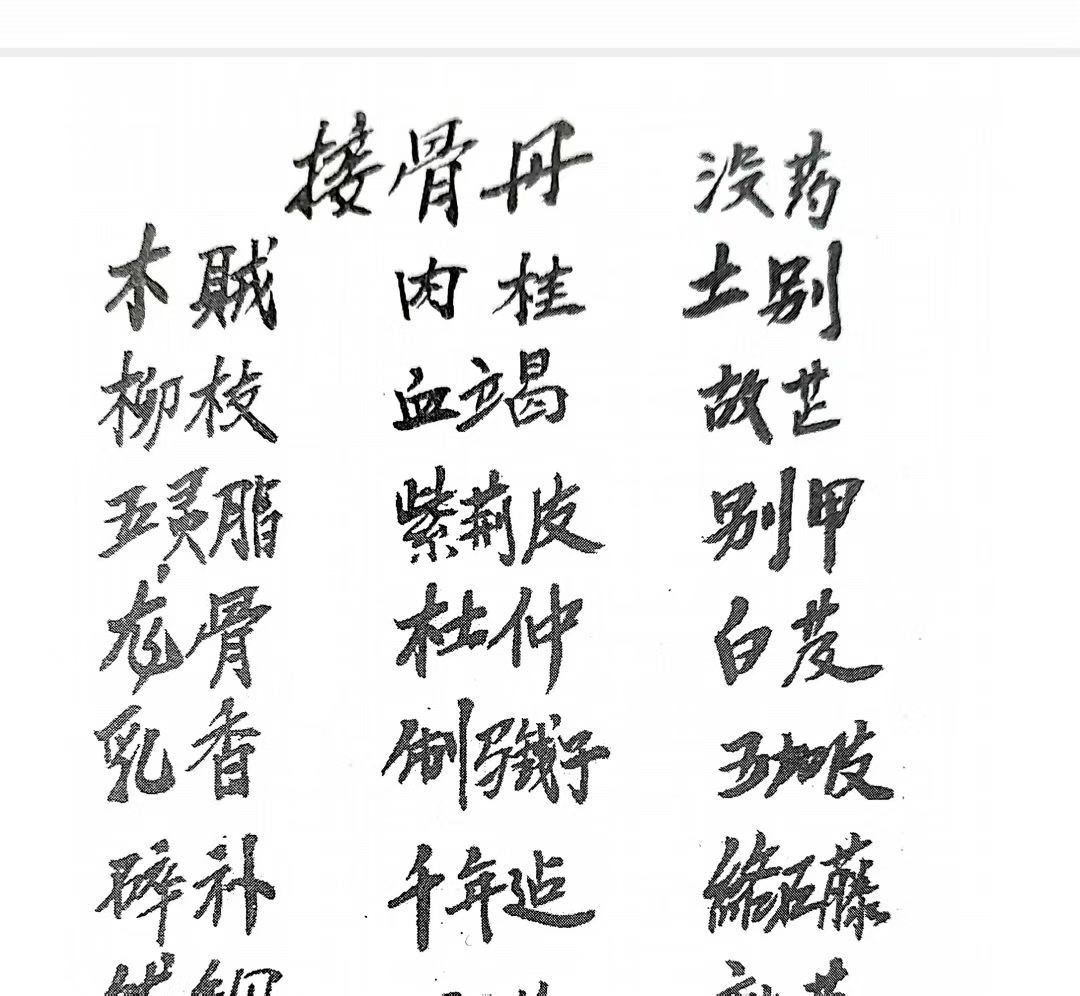 接骨丹 没药
木賊 肉桂 土别
柳枝 血竭 故芷
五灵脂 紫荆皮 别甲
龙骨 杜仲 白芨
乳香 制 子 五加皮
碎补 千年 络石藤